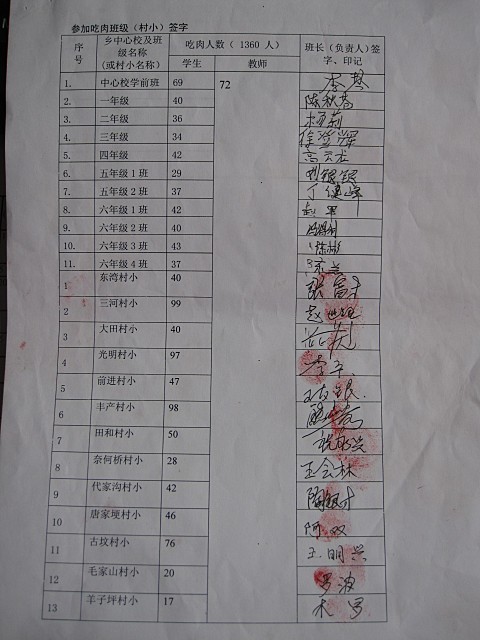 参加吃肉班级（村小）签字
序号 乡中心校及班级名称（或村小名称） 吃肉人数（ 1360 人） 班长（负责人）签字、印记
学生 教师
1. 中心校学前班 69 72 李琴
2. 一年级 40
3. 二年级 36 杨莉
4. 三年级 34 徐登辉
5. 四年级 42 高云龙
6. 五年级 1 班 29 刘银银
7. 五年级 2 班 37 丁健峰
8. 六年级 1 班 42 赵军
9. 六年级 2 班 40
10. 六年级 3 班 43 陈彬
11. 六年级 4 班 37
1 东湾村小 40 张富才
2 三河村小 99
3 大田村小 40
4 光明村小 97 李平
5 前进村小 47
6 丰产村小 98
7 田和村小 50
8 奈何桥村小 28 王会林
9 代家沟村小 42 陶银才
10 唐家埂村小 46 阿双
11 古坟村小 76 王明兴
12 毛家山村小 20 罗波
13 羊子坪村小 17 木罗